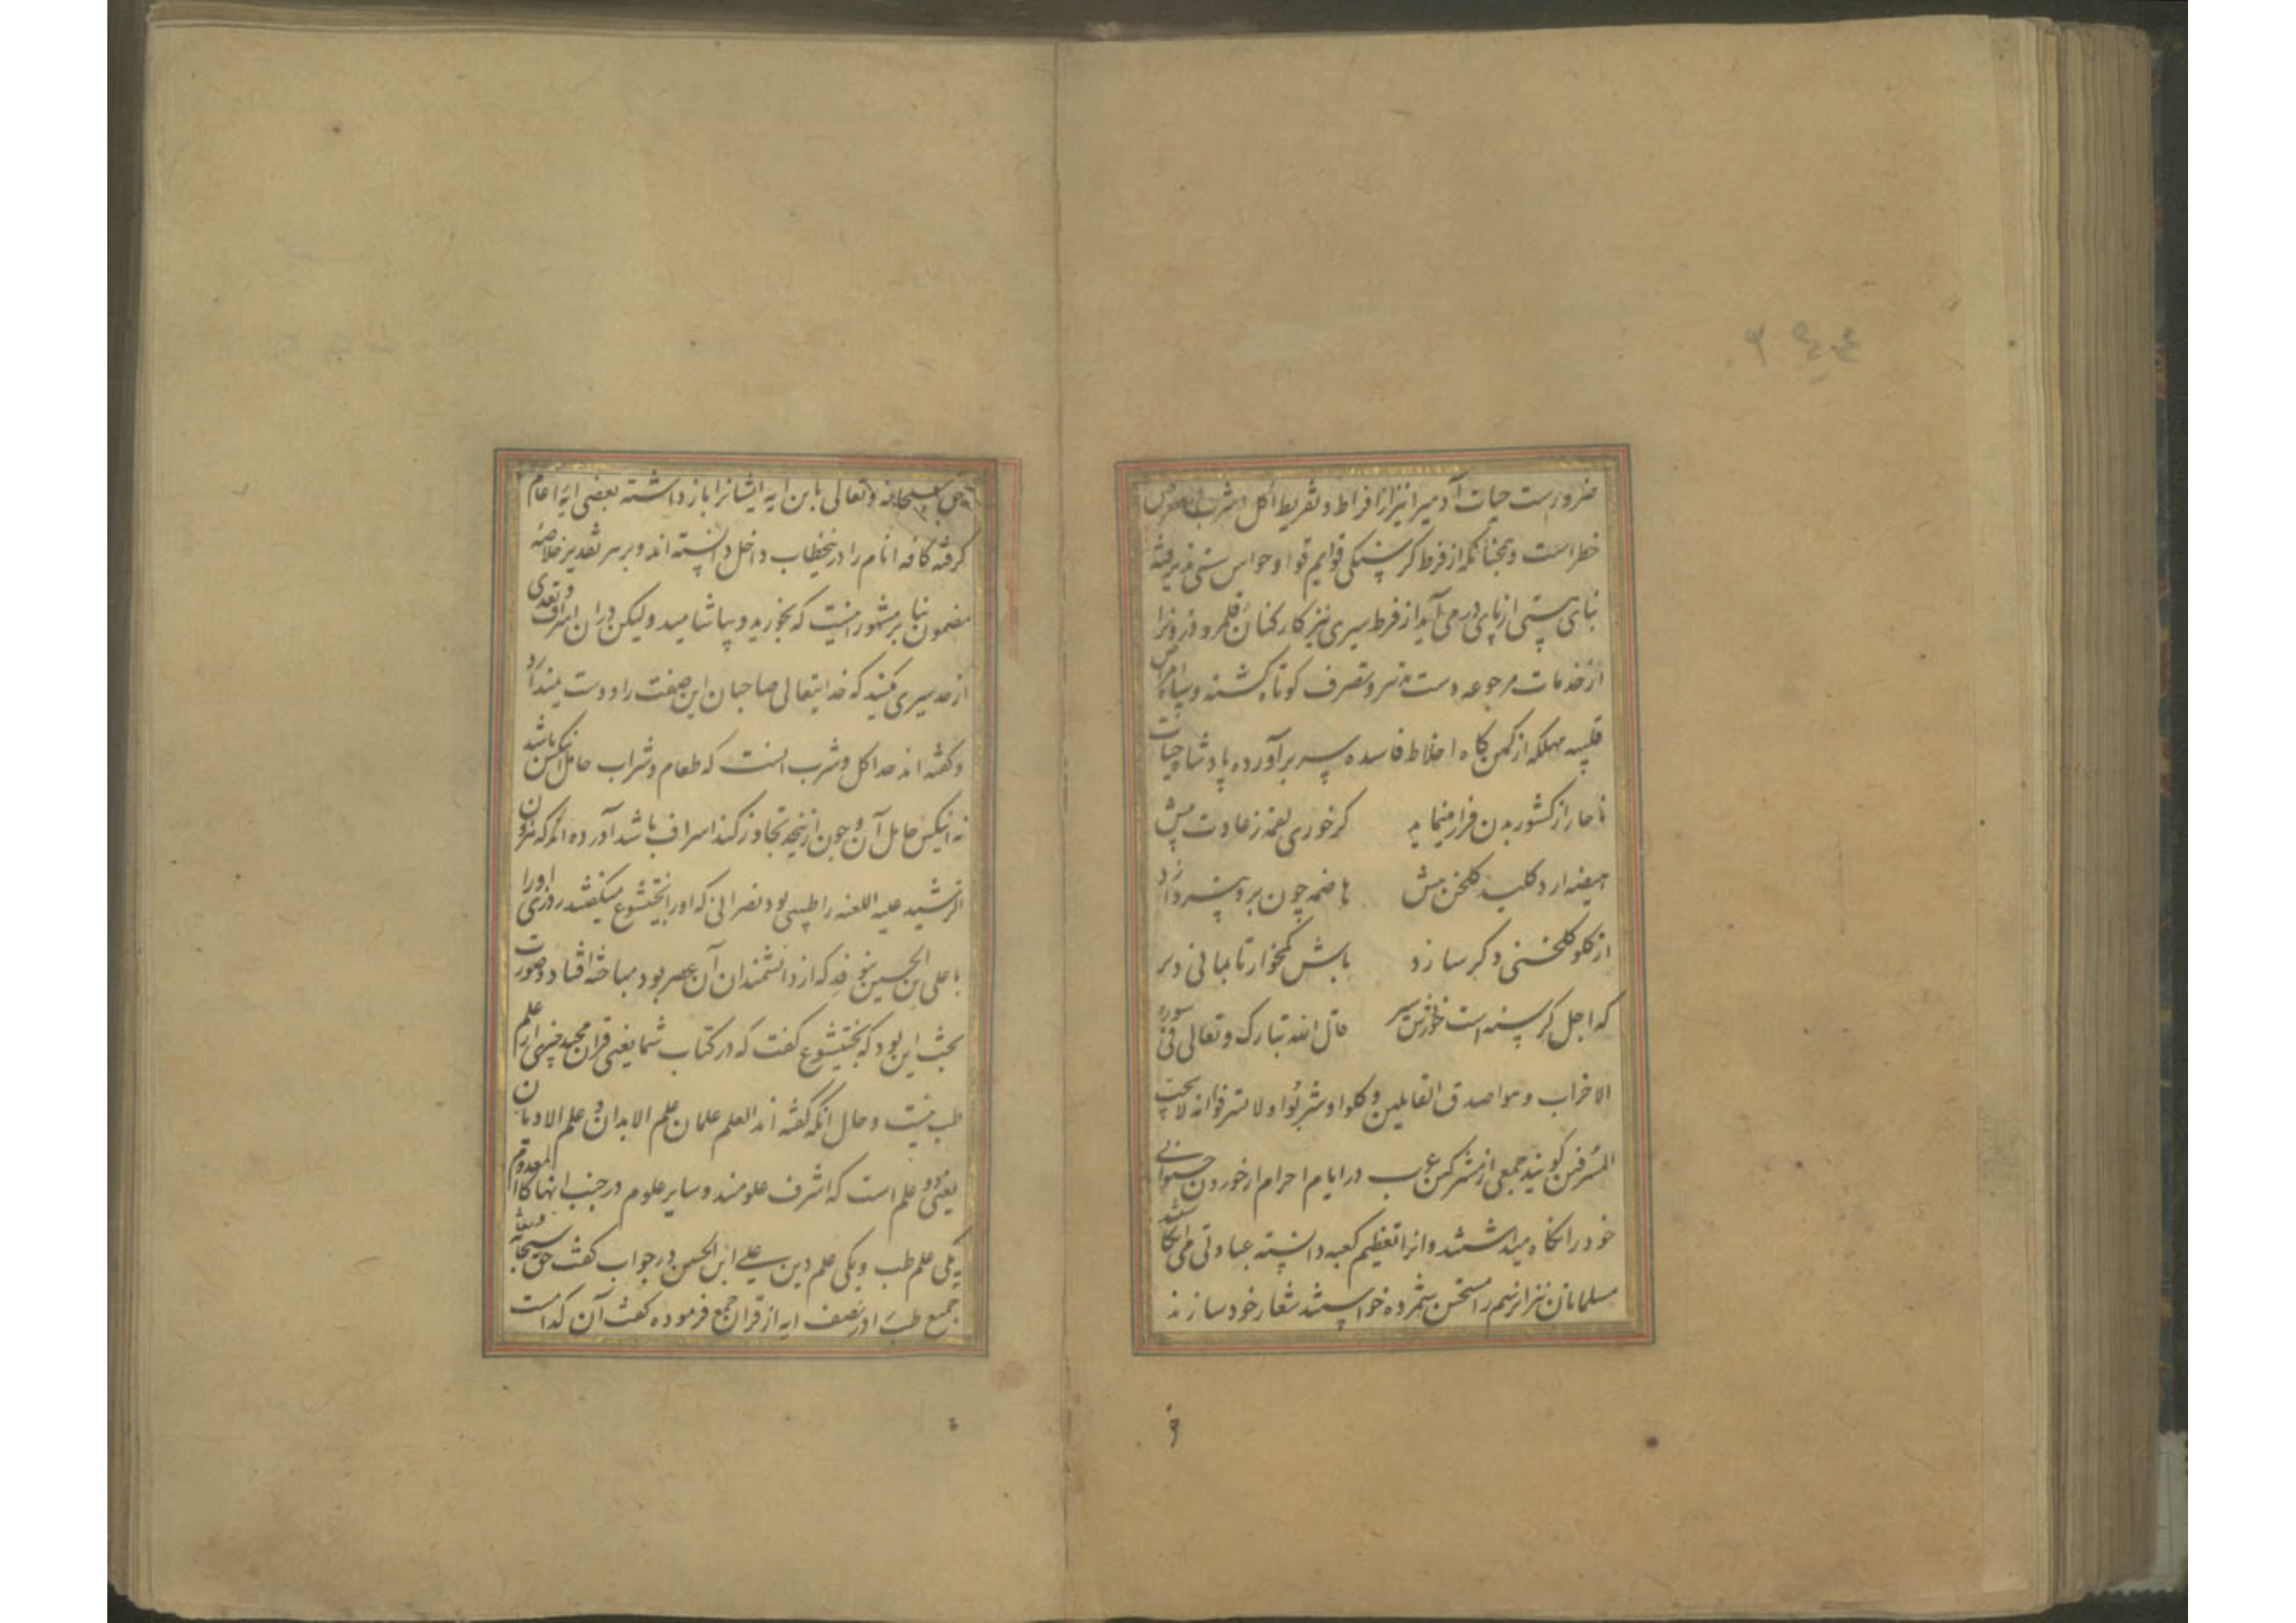 ضرورست حیات آدمیرا نیز از افراط و تفریط اکل و شرب
خطر است و همچنانکه از فرط کرسنکی قوایم قوا و حواس سستی پذیرفته
بنای هستی از پای در می آید از فرط سیری نیز کارکنان قلمرو درونرا
از خدمات مرجوعه دست تدبیر و تصرف کوتاه کشته و سپاه امراض
قلبیه مهلکه از کمین کاه اخلاط فاسده سر برآورده پادشاه حیات
ناچار از کشور بدن فرار مینماید
کر خوری لقمه ز عادت بیش
هیضه ارد کلید کلخن پیش
هاضمه چون برو نپردازد
از کلو کلخنی دکر سازد
باش کمخوار تا بمانی دیر
که اجل کرسنه است
قال الله تبارک و تعالی فی سوره
الاحزاب و هو اصدق القایلین و کلوا و شربوا و لا تسرفوا انه لا یحب
المسرفین کویند جمعی از مشرکین عرب در ایام احرام از خوردن حیوانی
خود را نکاه میداشتند و انرا تعظیم کعبه دانسته عبادتی می انکاشتند
مسلمانان نیز انرسم را مستحسن شمرده خواستند شعار خود سازند
حق سبحانه و تعالی باین ایه ایشانرا باز داشته بعضی ایه را عام
کرفته کافه انام را در ینخطاب داخل دانسته اند و بر هر تقدیر خلاصه
مضمون بنا بر مشهور اینست که بخورید و بیاشامید و لیکن در ان اسراف و تعدی
از حد سیری مکنید که خدایتعالی صاحبان این صفت را دوست نمیدارد
و کفته اند حد اکل و شرب انست که طعام و شراب حامل انکس باشد
نه انکس حامل آن و چون ازینحد تجاوز کند اسراف باشد آورده اند که هرون
الرشید علیه اللعنه را طبیبی بود نصرانی که او را بختیشوع میکفتند روزی او را
با علی بن الحسین که از دانشمندان آن عصر بود مباحثه افتاد و صورت
بحث این بود که بختیشوع کفت که در کتاب شما یعنی قران مجید چیزی از علم
طب نیست و حال انکه کفته اند العلم علمان علم الابدان و علم الادیان
یعنی دو علم است که اشرف علومند و سایر علوم در جنب انها کالمعدوم
یکی علم طب و یکی علم دین علی ابن الحسین در جواب کفت حق سبحانه و تعالی
جمیع طب را در نصف ایه از قران جمع فرموده کفت آن کدامست